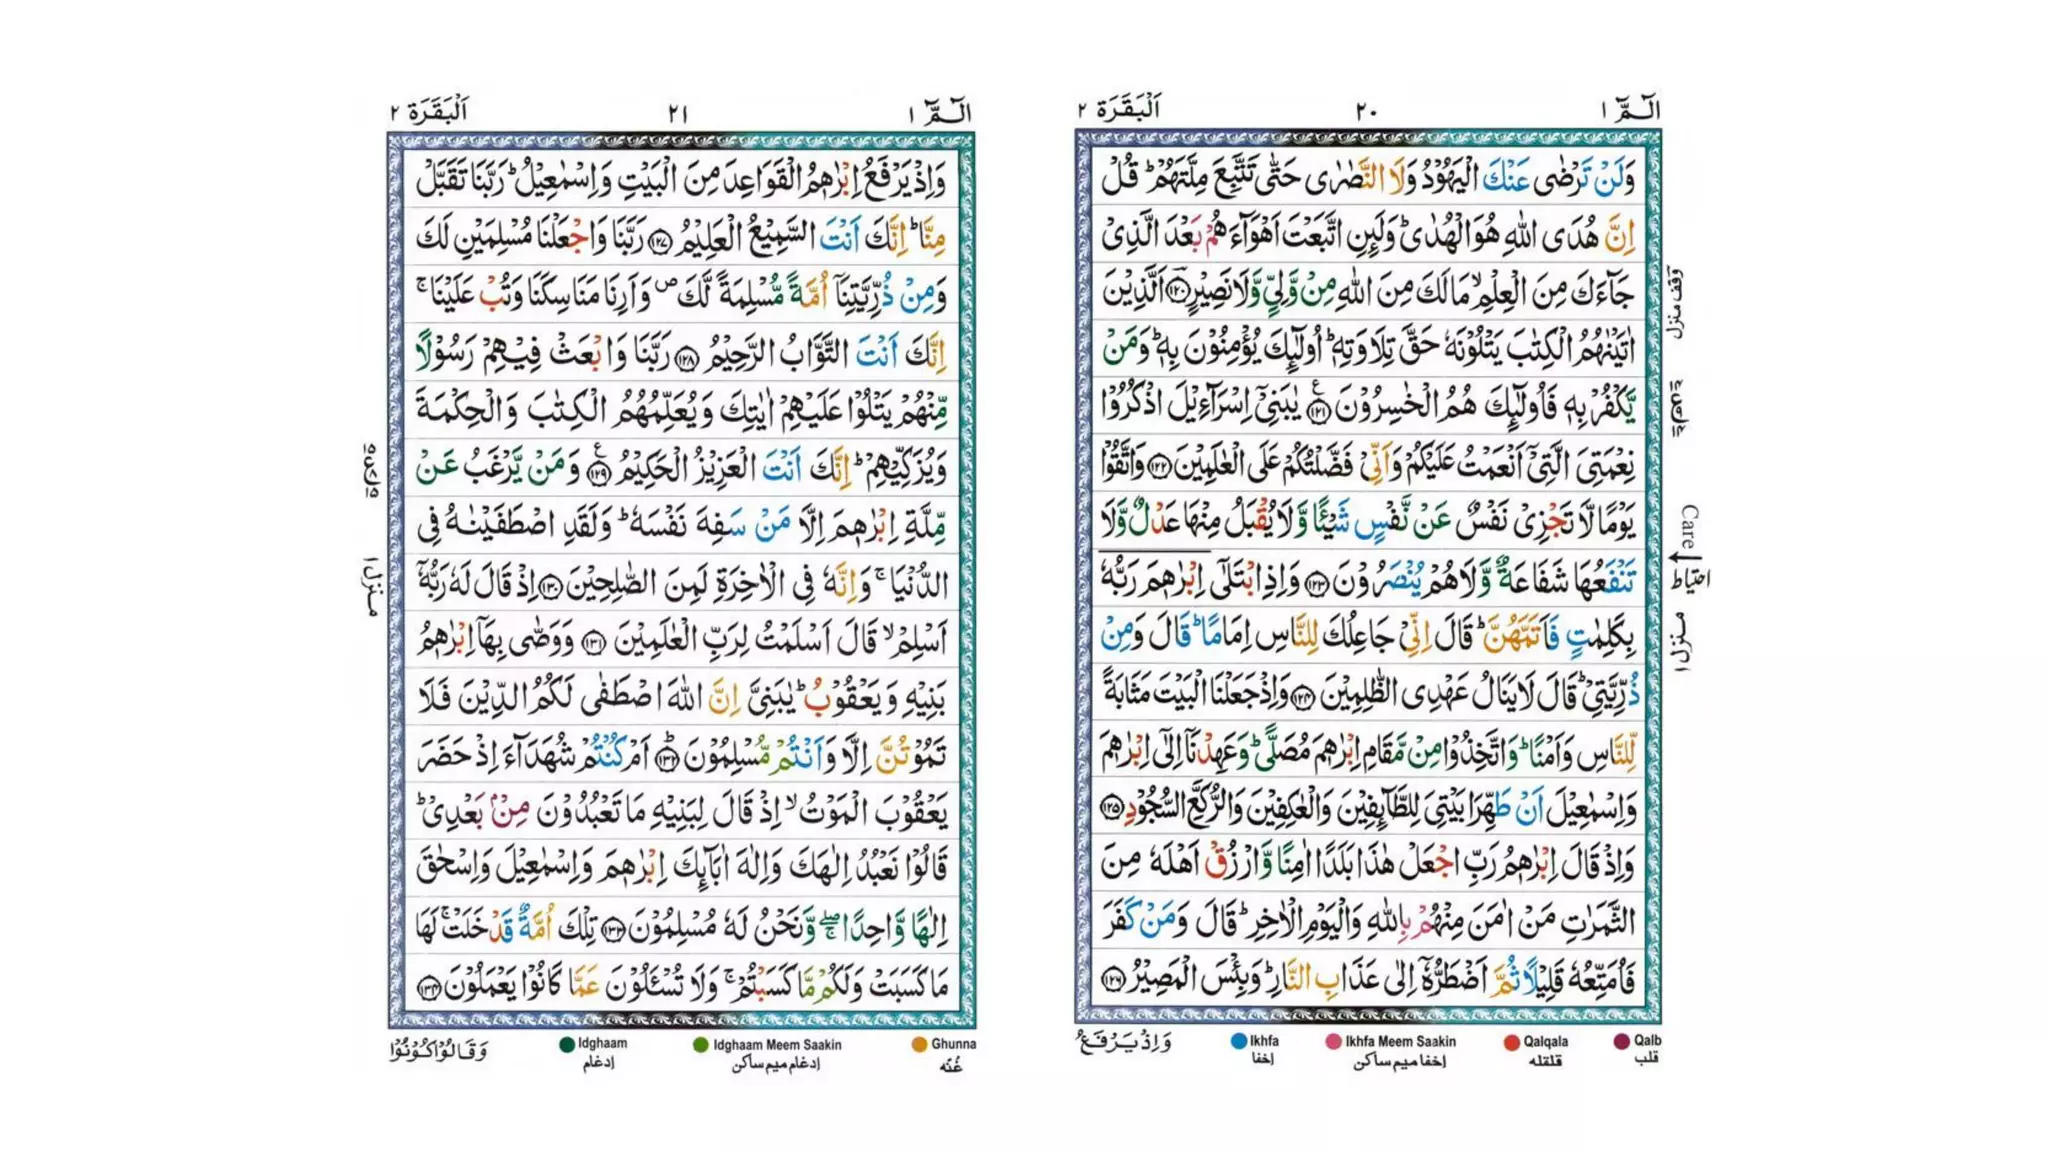 الٓمّٓ ١
٢٠
اَلْبَقَرَة ٢
وَلَنْ تَرْضٰى عَنْكَ الْيَهُوْدُ وَلَا النَّصٰرٰى حَتّٰى تَتَّبِعَ مِلَّتَهُمْ ؕ قُلْ
اِنَّ هُدَى اللّٰهِ هُوَ الْهُدٰى ؕ وَلَىِٕنِ اتَّبَعْتَ اَهْوَآءَهُمْ بَعْدَ الَّذِيْ
جَآءَكَ مِنَ الْعِلْمِ ۙ مَا لَكَ مِنَ اللّٰهِ مِنْ وَّلِيٍّ وَّلَا نَصِيْرٍ ۝١٢٠ اَلَّذِيْنَ
اٰتَيْنٰهُمُ الْكِتٰبَ يَتْلُوْنَهٗ حَقَّ تِلَاوَتِهٖ ؕ اُولٰٓىِٕكَ يُؤْمِنُوْنَ بِهٖ ؕ وَمَنْ
يَّكْفُرْ بِهٖ فَاُولٰٓىِٕكَ هُمُ الْخٰسِرُوْنَ ۝١٢١ۧ يٰبَنِيْٓ اِسْرَآءِيْلَ اذْكُرُوْا
نِعْمَتِيَ الَّتِيْٓ اَنْعَمْتُ عَلَيْكُمْ وَاَنِّيْ فَضَّلْتُكُمْ عَلَى الْعٰلَمِيْنَ ۝١٢٢ وَاتَّقُوْا
يَوْمًا لَّا تَجْزِيْ نَفْسٌ عَنْ نَّفْسٍ شَيْـًٔا وَّلَا يُقْبَلُ مِنْهَا عَدْلٌ وَّلَا
تَنْفَعُهَا شَفَاعَةٌ وَّلَا هُمْ يُنْصَرُوْنَ ۝١٢٣ وَاِذِ ابْتَلٰٓى اِبْرٰهٖمَ رَبُّهٗ
بِكَلِمٰتٍ فَاَتَمَّهُنَّ ؕ قَالَ اِنِّيْ جَاعِلُكَ لِلنَّاسِ اِمَامًا ؕ قَالَ وَمِنْ
ذُرِّيَّتِيْ ؕ قَالَ لَا يَنَالُ عَهْدِي الظّٰلِمِيْنَ ۝١٢٤ وَاِذْ جَعَلْنَا الْبَيْتَ مَثَابَةً
لِّلنَّاسِ وَاَمْنًا ؕ وَاتَّخِذُوْا مِنْ مَّقَامِ اِبْرٰهٖمَ مُصَلًّى ؕ وَعَهِدْنَآ اِلٰٓى اِبْرٰهٖمَ
وَاِسْمٰعِيْلَ اَنْ طَهِّرَا بَيْتِيَ لِلطَّآىِٕفِيْنَ وَالْعٰكِفِيْنَ وَالرُّكَّعِ السُّجُوْدِ ۝١٢٥
وَاِذْ قَالَ اِبْرٰهٖمُ رَبِّ اجْعَلْ هٰذَا بَلَدًا اٰمِنًا وَّارْزُقْ اَهْلَهٗ مِنَ
الثَّمَرٰتِ مَنْ اٰمَنَ مِنْهُمْ بِاللّٰهِ وَالْيَوْمِ الْاٰخِرِ ؕ قَالَ وَمَنْ كَفَرَ
فَاُمَتِّعُهٗ قَلِيْلًا ثُمَّ اَضْطَرُّهٗٓ اِلٰى عَذَابِ النَّارِ ؕ وَبِئْسَ الْمَصِيْرُ ۝١٢٦
وقف منزل
Care
احتیاط
منزل ١
Qalb
قلب
Qalqala
قلقله
Ikhfa Meem Saakin
اخفا ميم ساكن
Ikhfa
اخفا
وَاِذْ يَرْفَعُ
الٓمّٓ ١
٢١
اَلْبَقَرَة ٢
وَاِذْ يَرْفَعُ اِبْرٰهٖمُ الْقَوَاعِدَ مِنَ الْبَيْتِ وَاِسْمٰعِيْلُ ؕ رَبَّنَا تَقَبَّلْ
مِنَّا ؕ اِنَّكَ اَنْتَ السَّمِيْعُ الْعَلِيْمُ ۝١٢٧ رَبَّنَا وَاجْعَلْنَا مُسْلِمَيْنِ لَكَ
وَمِنْ ذُرِّيَّتِنَآ اُمَّةً مُّسْلِمَةً لَّكَ ۪ وَاَرِنَا مَنَاسِكَنَا وَتُبْ عَلَيْنَا ۚ
اِنَّكَ اَنْتَ التَّوَّابُ الرَّحِيْمُ ۝١٢٨ رَبَّنَا وَابْعَثْ فِيْهِمْ رَسُوْلًا
مِّنْهُمْ يَتْلُوْا عَلَيْهِمْ اٰيٰتِكَ وَيُعَلِّمُهُمُ الْكِتٰبَ وَالْحِكْمَةَ
وَيُزَكِّيْهِمْ ؕ اِنَّكَ اَنْتَ الْعَزِيْزُ الْحَكِيْمُ ۝١٢٩ۧ وَمَنْ يَّرْغَبُ عَنْ
مِّلَّةِ اِبْرٰهٖمَ اِلَّا مَنْ سَفِهَ نَفْسَهٗ ؕ وَلَقَدِ اصْطَفَيْنٰهُ فِي
الدُّنْيَا ۚ وَاِنَّهٗ فِي الْاٰخِرَةِ لَمِنَ الصّٰلِحِيْنَ ۝١٣٠ اِذْ قَالَ لَهٗ رَبُّهٗٓ
اَسْلِمْ ۙ قَالَ اَسْلَمْتُ لِرَبِّ الْعٰلَمِيْنَ ۝١٣١ وَوَصّٰى بِهَآ اِبْرٰهٖمُ
بَنِيْهِ وَيَعْقُوْبُ ؕ يٰبَنِيَّ اِنَّ اللّٰهَ اصْطَفٰى لَكُمُ الدِّيْنَ فَلَا
تَمُوْتُنَّ اِلَّا وَاَنْتُمْ مُّسْلِمُوْنَ ۝١٣٢ اَمْ كُنْتُمْ شُهَدَآءَ اِذْ حَضَرَ
يَعْقُوْبَ الْمَوْتُ ۙ اِذْ قَالَ لِبَنِيْهِ مَا تَعْبُدُوْنَ مِنْۢ بَعْدِيْ ؕ
قَالُوْا نَعْبُدُ اِلٰهَكَ وَاِلٰهَ اٰبَآىِٕكَ اِبْرٰهٖمَ وَاِسْمٰعِيْلَ وَاِسْحٰقَ
اِلٰهًا وَّاحِدًا ۖۚ وَّنَحْنُ لَهٗ مُسْلِمُوْنَ ۝١٣٣ تِلْكَ اُمَّةٌ قَدْ خَلَتْ ۚ لَهَا
مَا كَسَبَتْ وَلَكُمْ مَّا كَسَبْتُمْ ۚ وَلَا تُسْـَٔلُوْنَ عَمَّا كَانُوْا يَعْمَلُوْنَ ۝١٣٤
منزل ١
Ghunna
غُنّه
Idghaam Meem Saakin
ادغام ميم ساكن
Idghaam
ادغام
وَقَالُوْا كُوْنُوْا